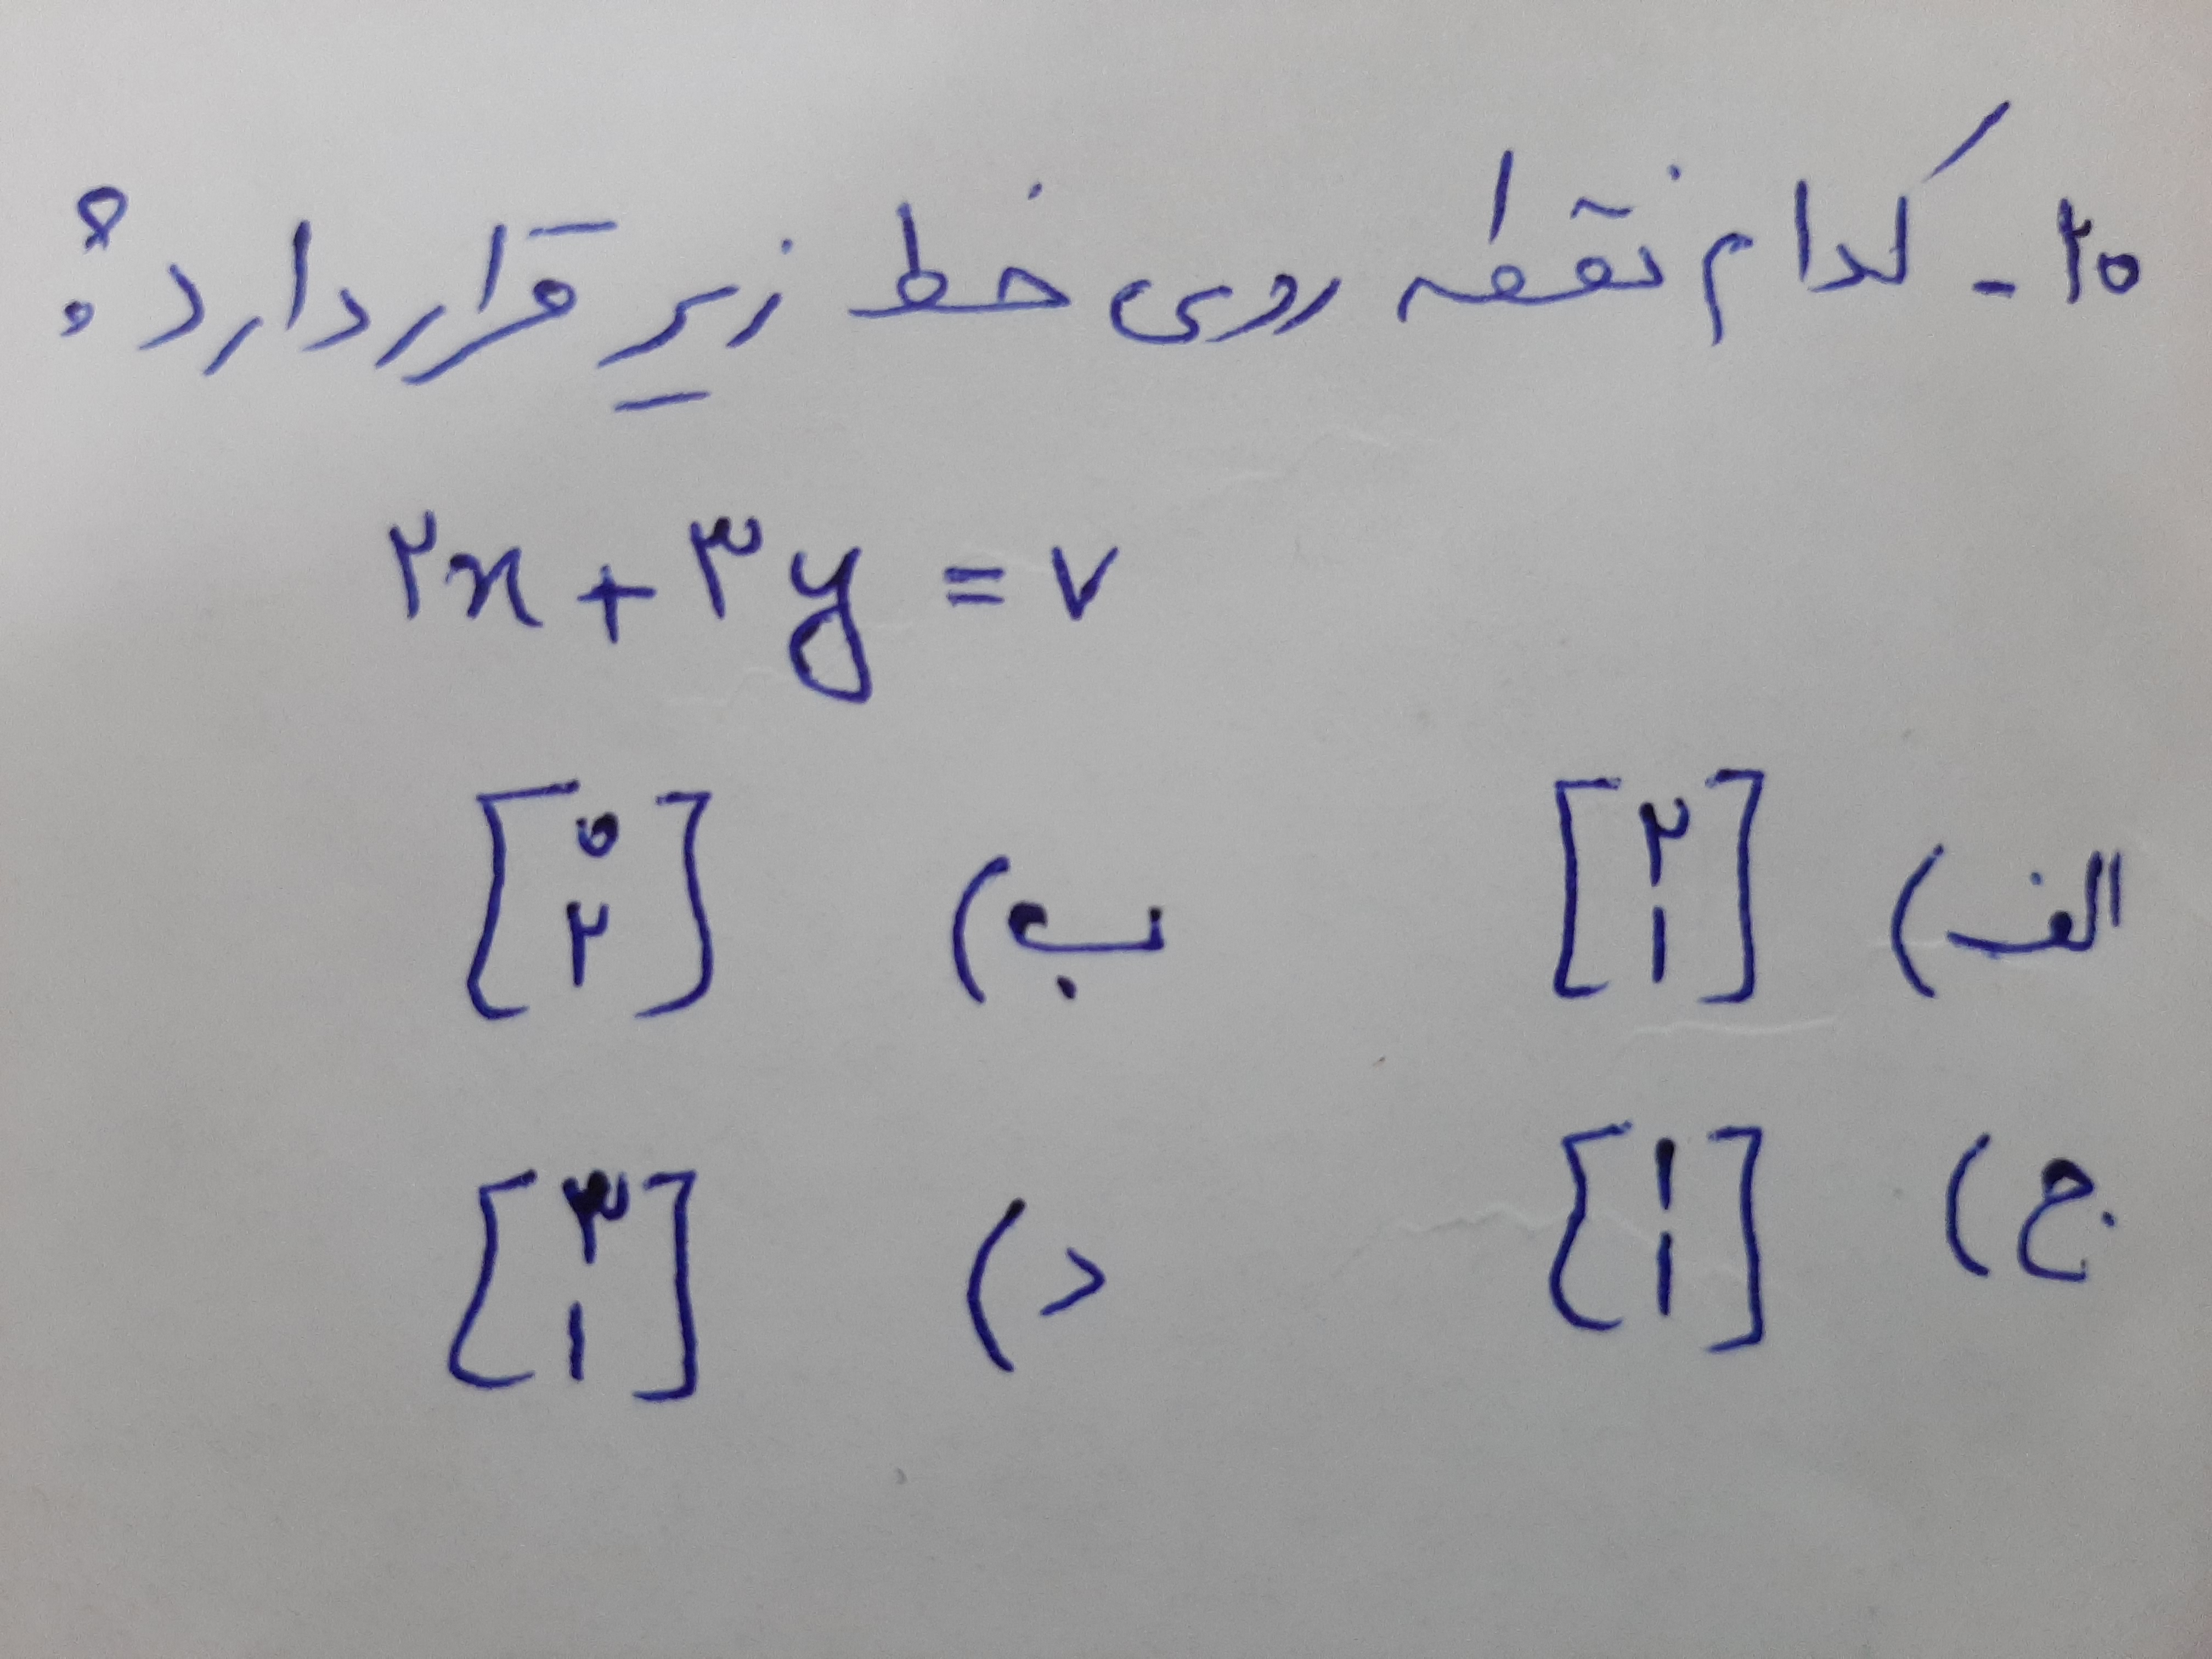 ۲۰- کدام نقطه روی خط زیر قرار دارد؟
۲x + ۳y = ۷
الف) [۲ ۱] ب) [۰ ۲]
ج) [۱ ۱] د) [۳ ۱]